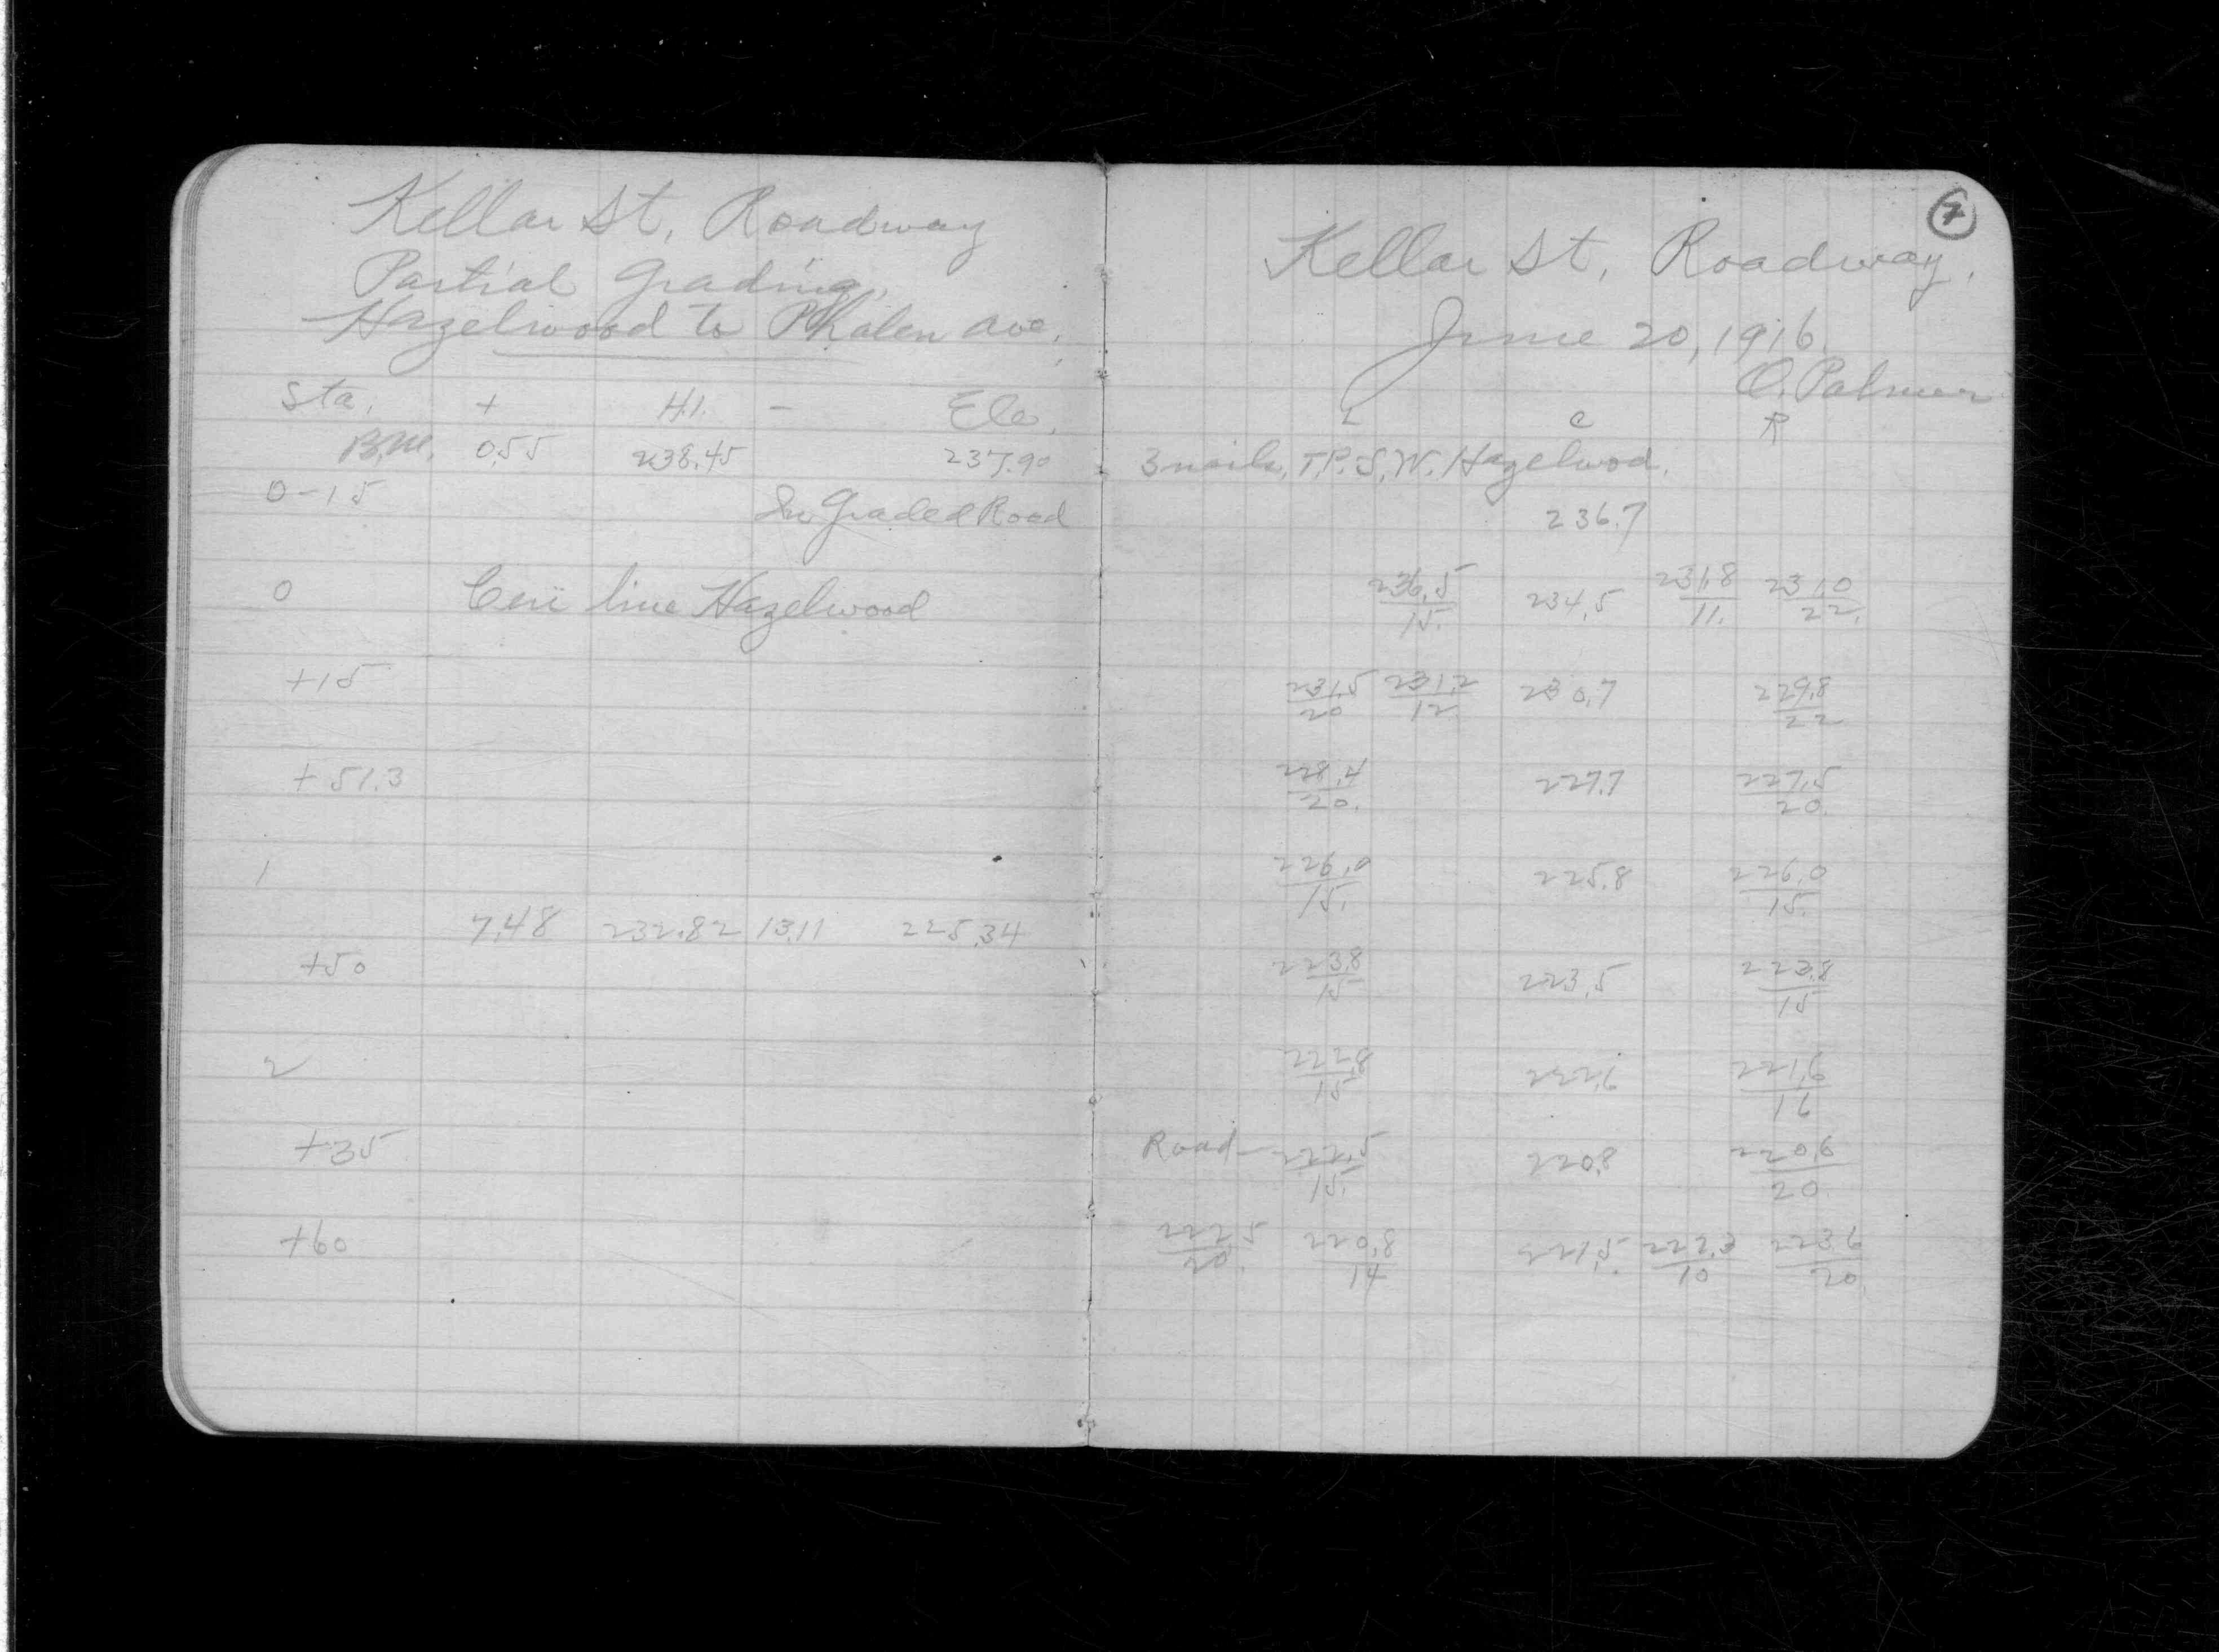 Kellar St, Roadway
Partial Grading,
Hazelwood to Phalen Ave.
Sta. + H.I. - Ele.
B.M. 0.55 238.45 237.90
0-15 Graded Road
0 Cen line Hazelwood
+15
+51.3
1
7.48 232.82 13.11 225.34
+50
2
+35
+60
7
Kellar St, Roadway.
June 20, 1916.
O. Palmer
L C R
3 nails, T.P. S.W. Hazelwood.
236.7
236.5 234.5 231.8 231.0
15. 11. 22.
231.5 231.2 230.7 229.8
20 12 22
228.4 227.7 227.5
20. 20.
226.0 225.8 226.0
15. 15.
223.8 223.5 223.8
15 15
222.8 222.6 221.6
15 16
Road 222.5 220.8 220.6
15. 20.
222.5 220.8 221.5 222.3 223.6
20. 14 10 20.